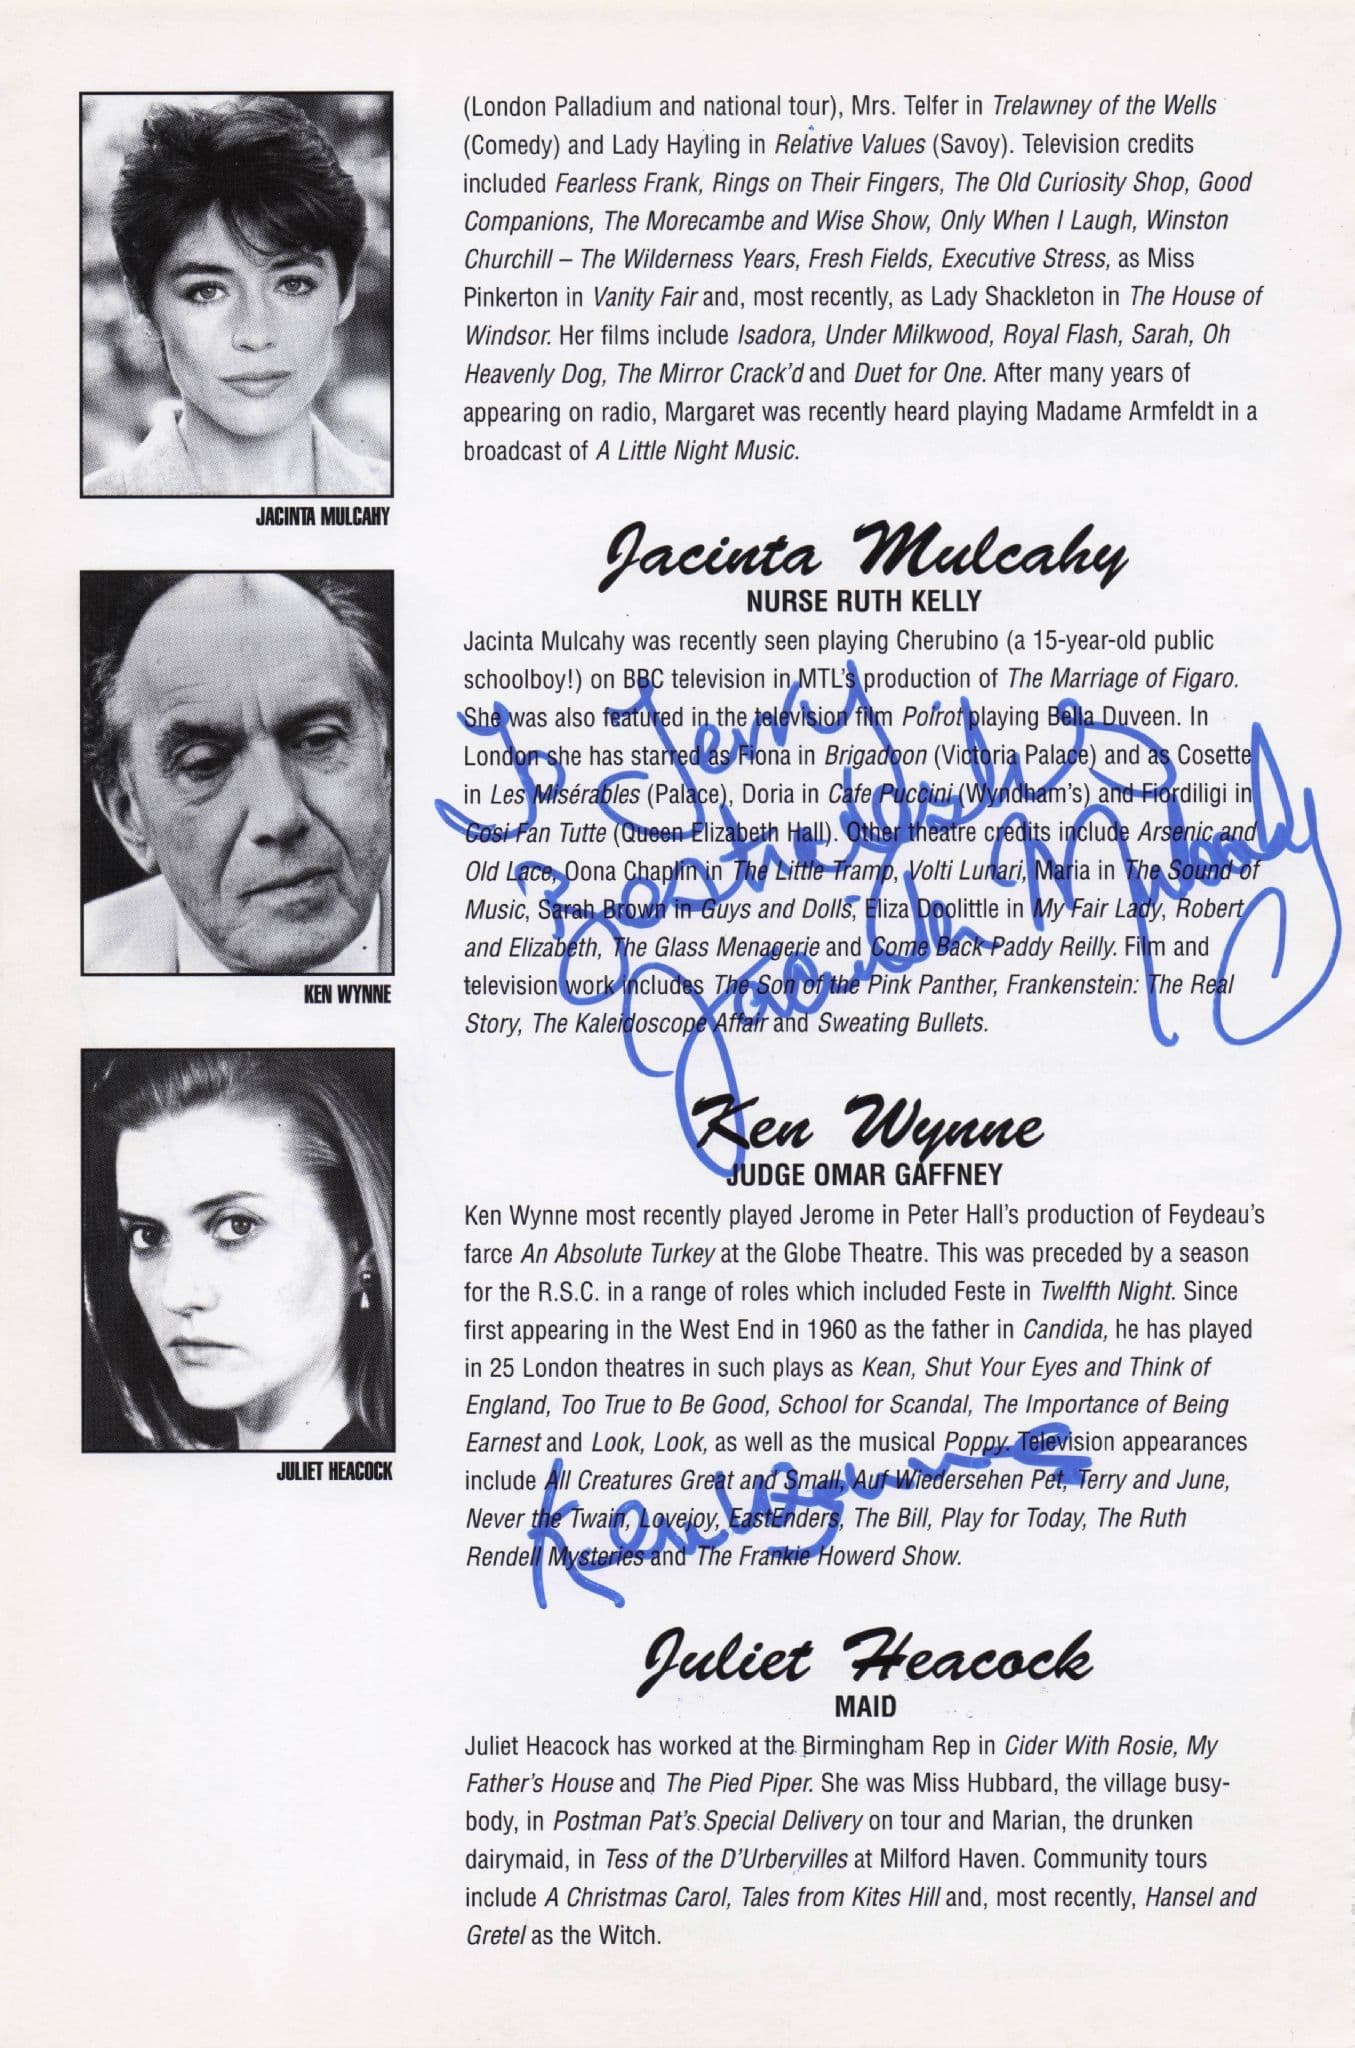 (London Palladium and national tour), Mrs. Telfer in Trelawney of the Wells
(Comedy) and Lady Hayling in Relative Values (Savoy). Television credits
included Fearless Frank, Rings on Their Fingers, The Old Curiosity Shop, Good
Companions, The Morecambe and Wise Show, Only When I Laugh, Winston
Churchill – The Wilderness Years, Fresh Fields, Executive Stress, as Miss
Pinkerton in Vanity Fair and, most recently, as Lady Shackleton in The House of
Windsor. Her films include Isadora, Under Milkwood, Royal Flash, Sarah, Oh
Heavenly Dog, The Mirror Crack'd and Duet for One. After many years of
appearing on radio, Margaret was recently heard playing Madame Armfeldt in a
broadcast of A Little Night Music.
JACINTA MULCAHY
Jacinta Mulcahy
NURSE RUTH KELLY
Jacinta Mulcahy was recently seen playing Cherubino (a 15-year-old public
schoolboy!) on BBC television in MTL's production of The Marriage of Figaro.
She was also featured in the television film Poirot playing Bella Duveen. In
London she has starred as Fiona in Brigadoon (Victoria Palace) and as Cosette
in Les Misérables (Palace), Doria in Cafe Puccini (Wyndham's) and Fiordiligi in
Cosi Fan Tutte (Queen Elizabeth Hall). Other theatre credits include Arsenic and
Old Lace, Oona Chaplin in The Little Tramp, Volti Lunari, Maria in The Sound of
Music, Sarah Brown in Guys and Dolls, Eliza Doolittle in My Fair Lady, Robert
and Elizabeth, The Glass Menagerie and Come Back Paddy Reilly. Film and
television work includes The Son of the Pink Panther, Frankenstein: The Real
Story, The Kaleidoscope Affair and Sweating Bullets.
To Terry
Best wishes
Jacinta Mulcahy
KEN WYNNE
Ken Wynne
JUDGE OMAR GAFFNEY
Ken Wynne most recently played Jerome in Peter Hall's production of Feydeau's
farce An Absolute Turkey at the Globe Theatre. This was preceded by a season
for the R.S.C. in a range of roles which included Feste in Twelfth Night. Since
first appearing in the West End in 1960 as the father in Candida, he has played
in 25 London theatres in such plays as Kean, Shut Your Eyes and Think of
England, Too True to Be Good, School for Scandal, The Importance of Being
Earnest and Look, Look, as well as the musical Poppy. Television appearances
include All Creatures Great and Small, Auf Wiedersehen Pet, Terry and June,
Never the Twain, Lovejoy, EastEnders, The Bill, Play for Today, The Ruth
Rendell Mysteries and The Frankie Howerd Show.
Ken Wynne
JULIET HEACOCK
Juliet Heacock
MAID
Juliet Heacock has worked at the Birmingham Rep in Cider With Rosie, My
Father's House and The Pied Piper. She was Miss Hubbard, the village busy-
body, in Postman Pat's Special Delivery on tour and Marian, the drunken
dairymaid, in Tess of the D'Urbervilles at Milford Haven. Community tours
include A Christmas Carol, Tales from Kites Hill and, most recently, Hansel and
Gretel as the Witch.